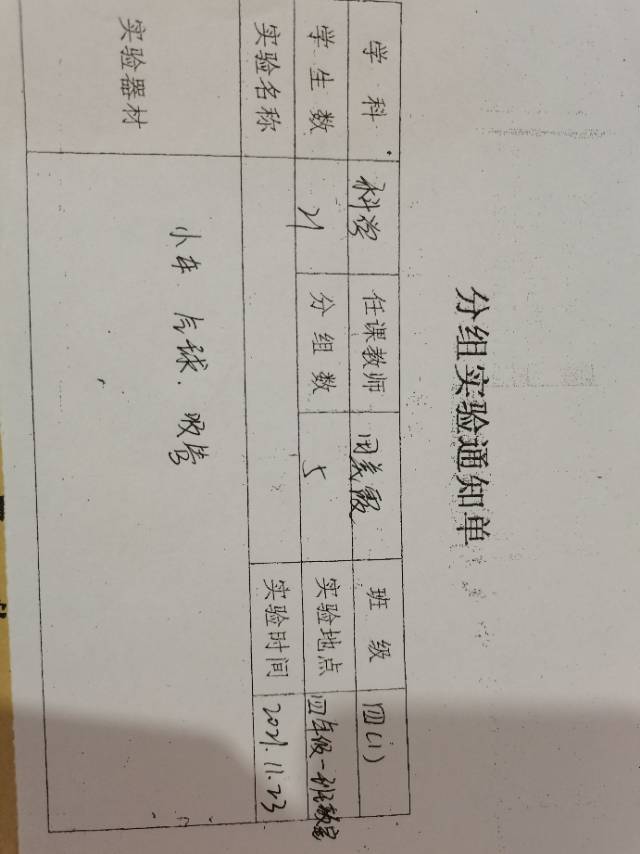 分组实验通知单
学科 科学 任课教师 田美霞 班级 四(1)
学生数 21 分组数 5 实验地点 四年级一班教室
实验名称 实验时间 2021.11.23
实验器材 小车、气球、吸管